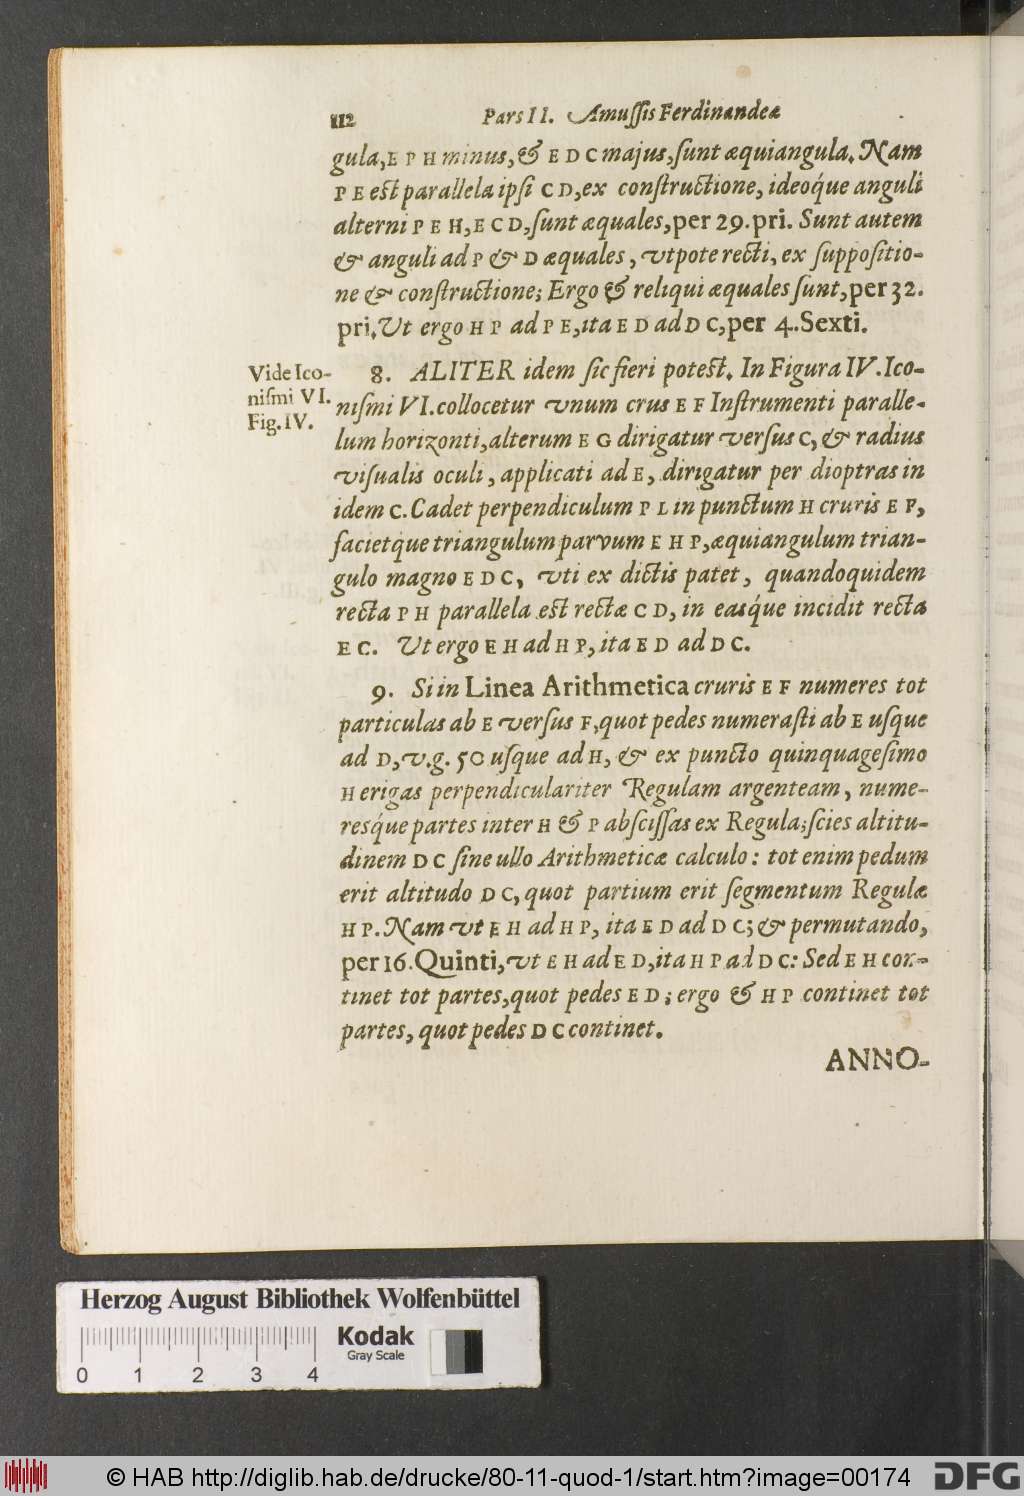 112 Pars II. Amuſſis Ferdinandeæ
gula, E P H minus, & E D C majus, ſunt æquiangula. Nam
P E eſt parallela ipſi C D, ex conſtructione, ideoq́ue anguli
alterni P E H, E C D, ſunt æquales, per 29. pri. Sunt autem
& anguli ad P & D æquales, vtpote recti, ex ſuppoſitio-
ne & conſtructione; Ergo & reliqui æquales ſunt, per 32.
pri. Vt ergo H P ad P E, ita E D ad D C, per 4. Sexti.
Vide Ico-
niſmi VI.
Fig. IV.
8. ALITER idem ſic fieri poteſt. In Figura IV. Ico-
niſmi VI. collocetur vnum crus E F Inſtrumenti paralle-
lum horizonti, alterum E G dirigatur verſus C, & radius
viſualis oculi, applicati ad E, dirigatur per dioptras in
idem C. Cadet perpendiculum P L in punctum H cruris E F,
facietque triangulum parvum E H P, æquiangulum trian-
gulo magno E D C, vti ex dictis patet, quandoquidem
recta P H parallela eſt rectæ C D, in easq́ue incidit recta
E C. Ut ergo E H ad H P, ita E D ad D C.
9. Si in Linea Arithmetica cruris E F numeres tot
particulas ab E verſus F, quot pedes numeraſti ab E uſque
ad D, v.g. 50 uſque ad H, & ex puncto quinquageſimo
H erigas perpendiculariter Regulam argenteam, nume-
resq́ue partes inter H & P abſciſſas ex Regula; ſcies altitu-
dinem D C ſine ullo Arithmeticæ calculo: tot enim pedum
erit altitudo D C, quot partium erit ſegmentum Regulæ
H P. Nam vt E H ad H P, ita E D ad D C; & permutando,
per 16. Quinti, vt E H ad E D, ita H P ad D C: Sed E H con-
tinet tot partes, quot pedes E D; ergo & H P continet tot
partes, quot pedes D C continet.
ANNO-
Herzog August Bibliothek Wolfenbüttel
Kodak
Gray Scale
0 1 2 3 4
© HAB http://diglib.hab.de/drucke/80-11-quod-1/start.htm?image=00174
DFG